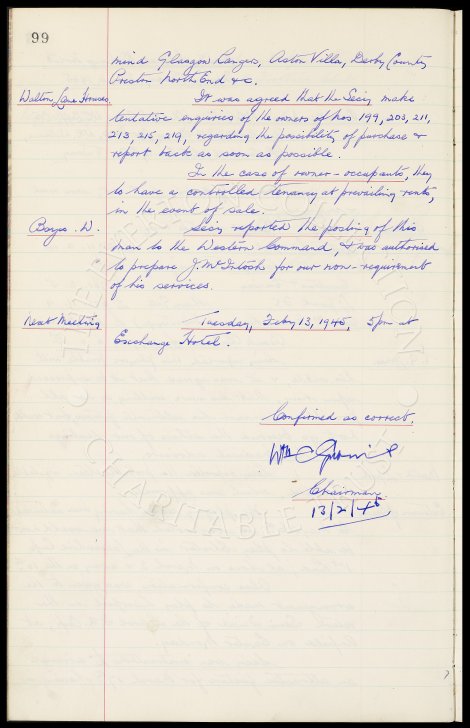 99
mind Glasgow Rangers, Aston Villa, Derby County
Preston North End &c.
Walton Lane Houses. It was agreed that the Secy make
tentative enquiries of the owners of Nos 199, 203, 211,
213, 215, 219, regarding the possibility of purchase &
report back as soon as possible.
In the case of owner-occupants, they
to have a controlled tenancy at prevailing rents,
in the event of sale.
Boyes. W. Secy reported the posting of this
man to the Western Command, & was authorised
to prepare J. McIntosh for our non-requirement
of his services.
Next Meeting Tuesday, Feby 13, 1945, 5pm at
Exchange Hotel.
Confirmed as correct.
Wm C
Chairman
13/2/45
CHARITABLE